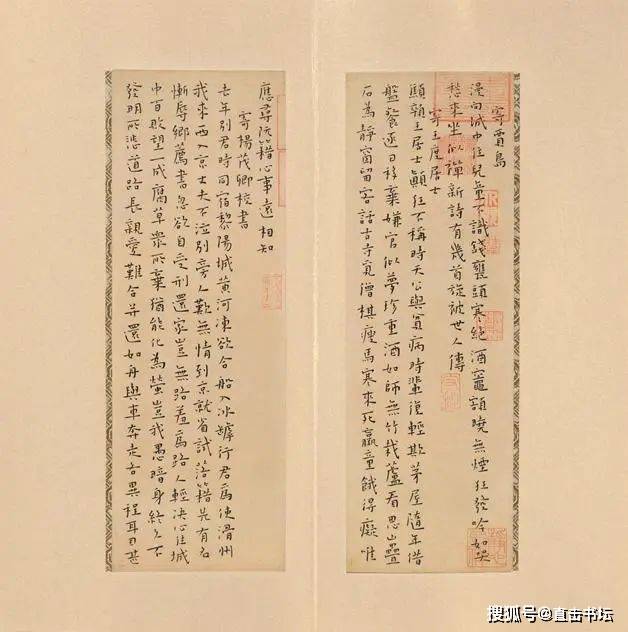 寄賈島
漫向城中住兒童不識錢甕頭寒絕酒竈額曉無煙狂發吟如哭
愁來坐似禪新詩有幾首旋被世人傳
寄王度居士
顦顇王居士顛狂不稱時天公與貧病時輩復輕欺茅屋隨年借
盤餐逐日移棄嫌官似夢珍重酒如師無竹栽蘆看思山疊
石為靜窗留客話古寺覓僧棋瘦馬寒來死羸童餓得癡唯
應尋阮籍心事遠相知
寄楊茂卿校書
去年別君時同宿黎陽城黃河凍欲合船入冰罅行君為使滑州
我來西入京士夫不泣別旁人歎無情到京就省試落籍先有名
慚辱鄉薦書忽欲自受刑還家豈無路羞為路人輕決心住城
中百敗望一成腐草眾所棄猶能化為螢豈我愚暗身終久不
發明所悲道路長親愛難合并還如舟與車奔走各異程耳目甚
搜狐号@直击书坛